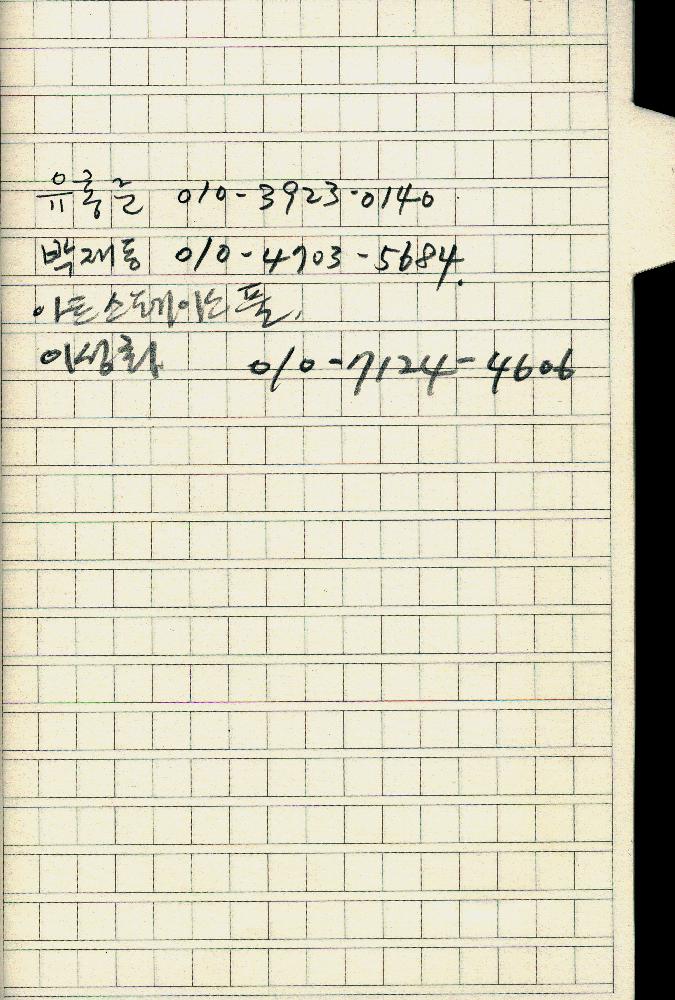 유홍준 010-3923-0140
박재동 010-4703-5684.
아트 스페이스 풀.
이성희 010-7124-4606